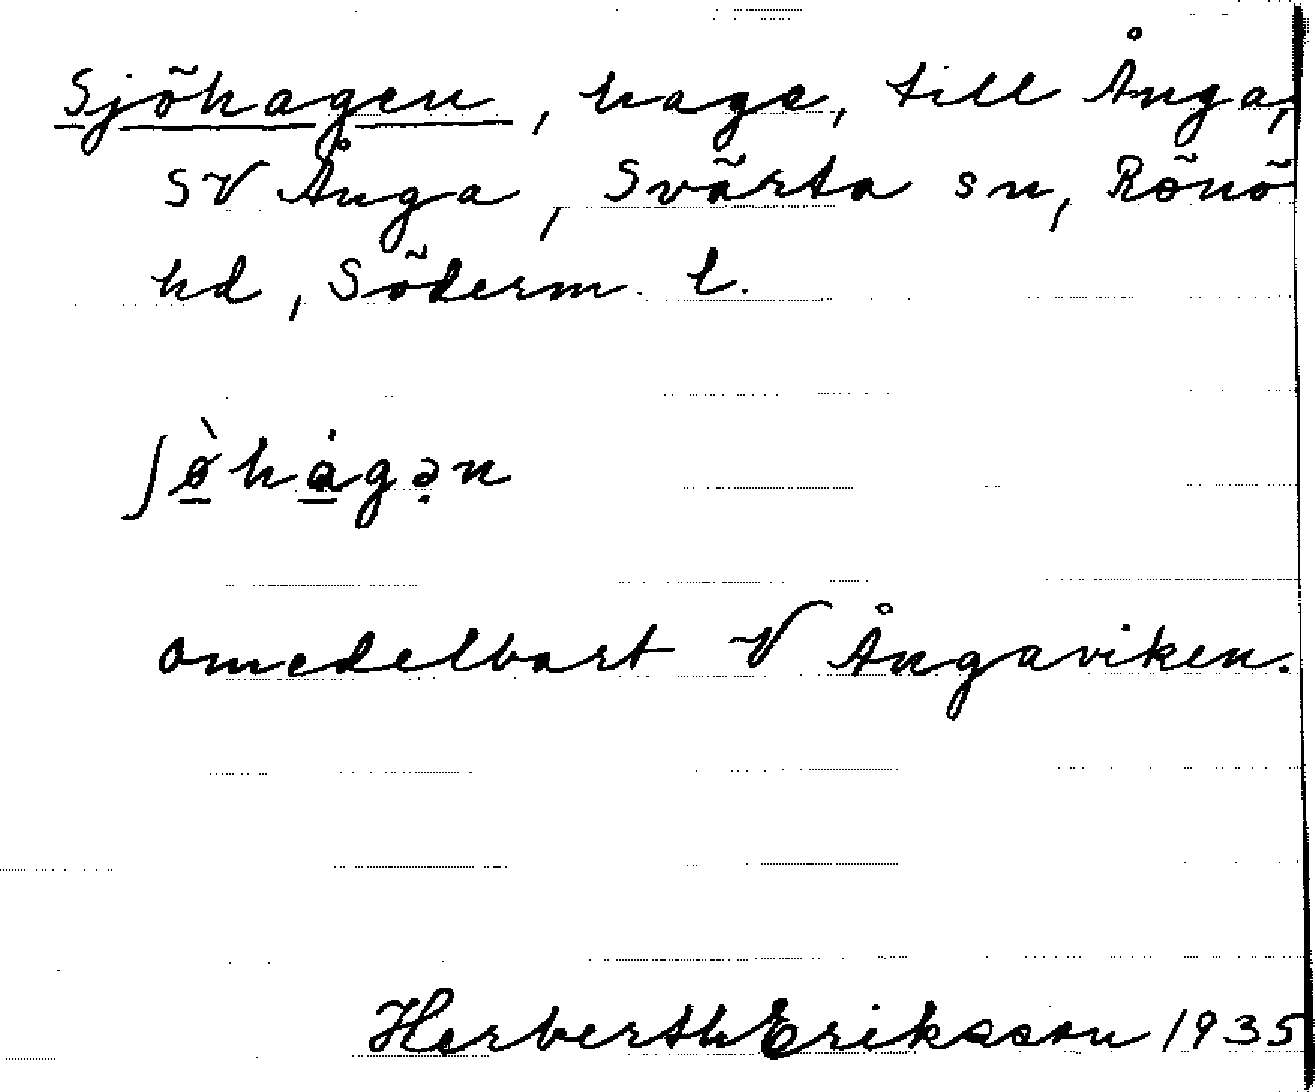 Sjöhagen, hage, till Ånga,
SV Ånga, Svärta sn, Rönö
hd, Söderm. l.
ʃø̀hȧgən
omedelbart V Ångaviken.
Herberth Eriksson 1935